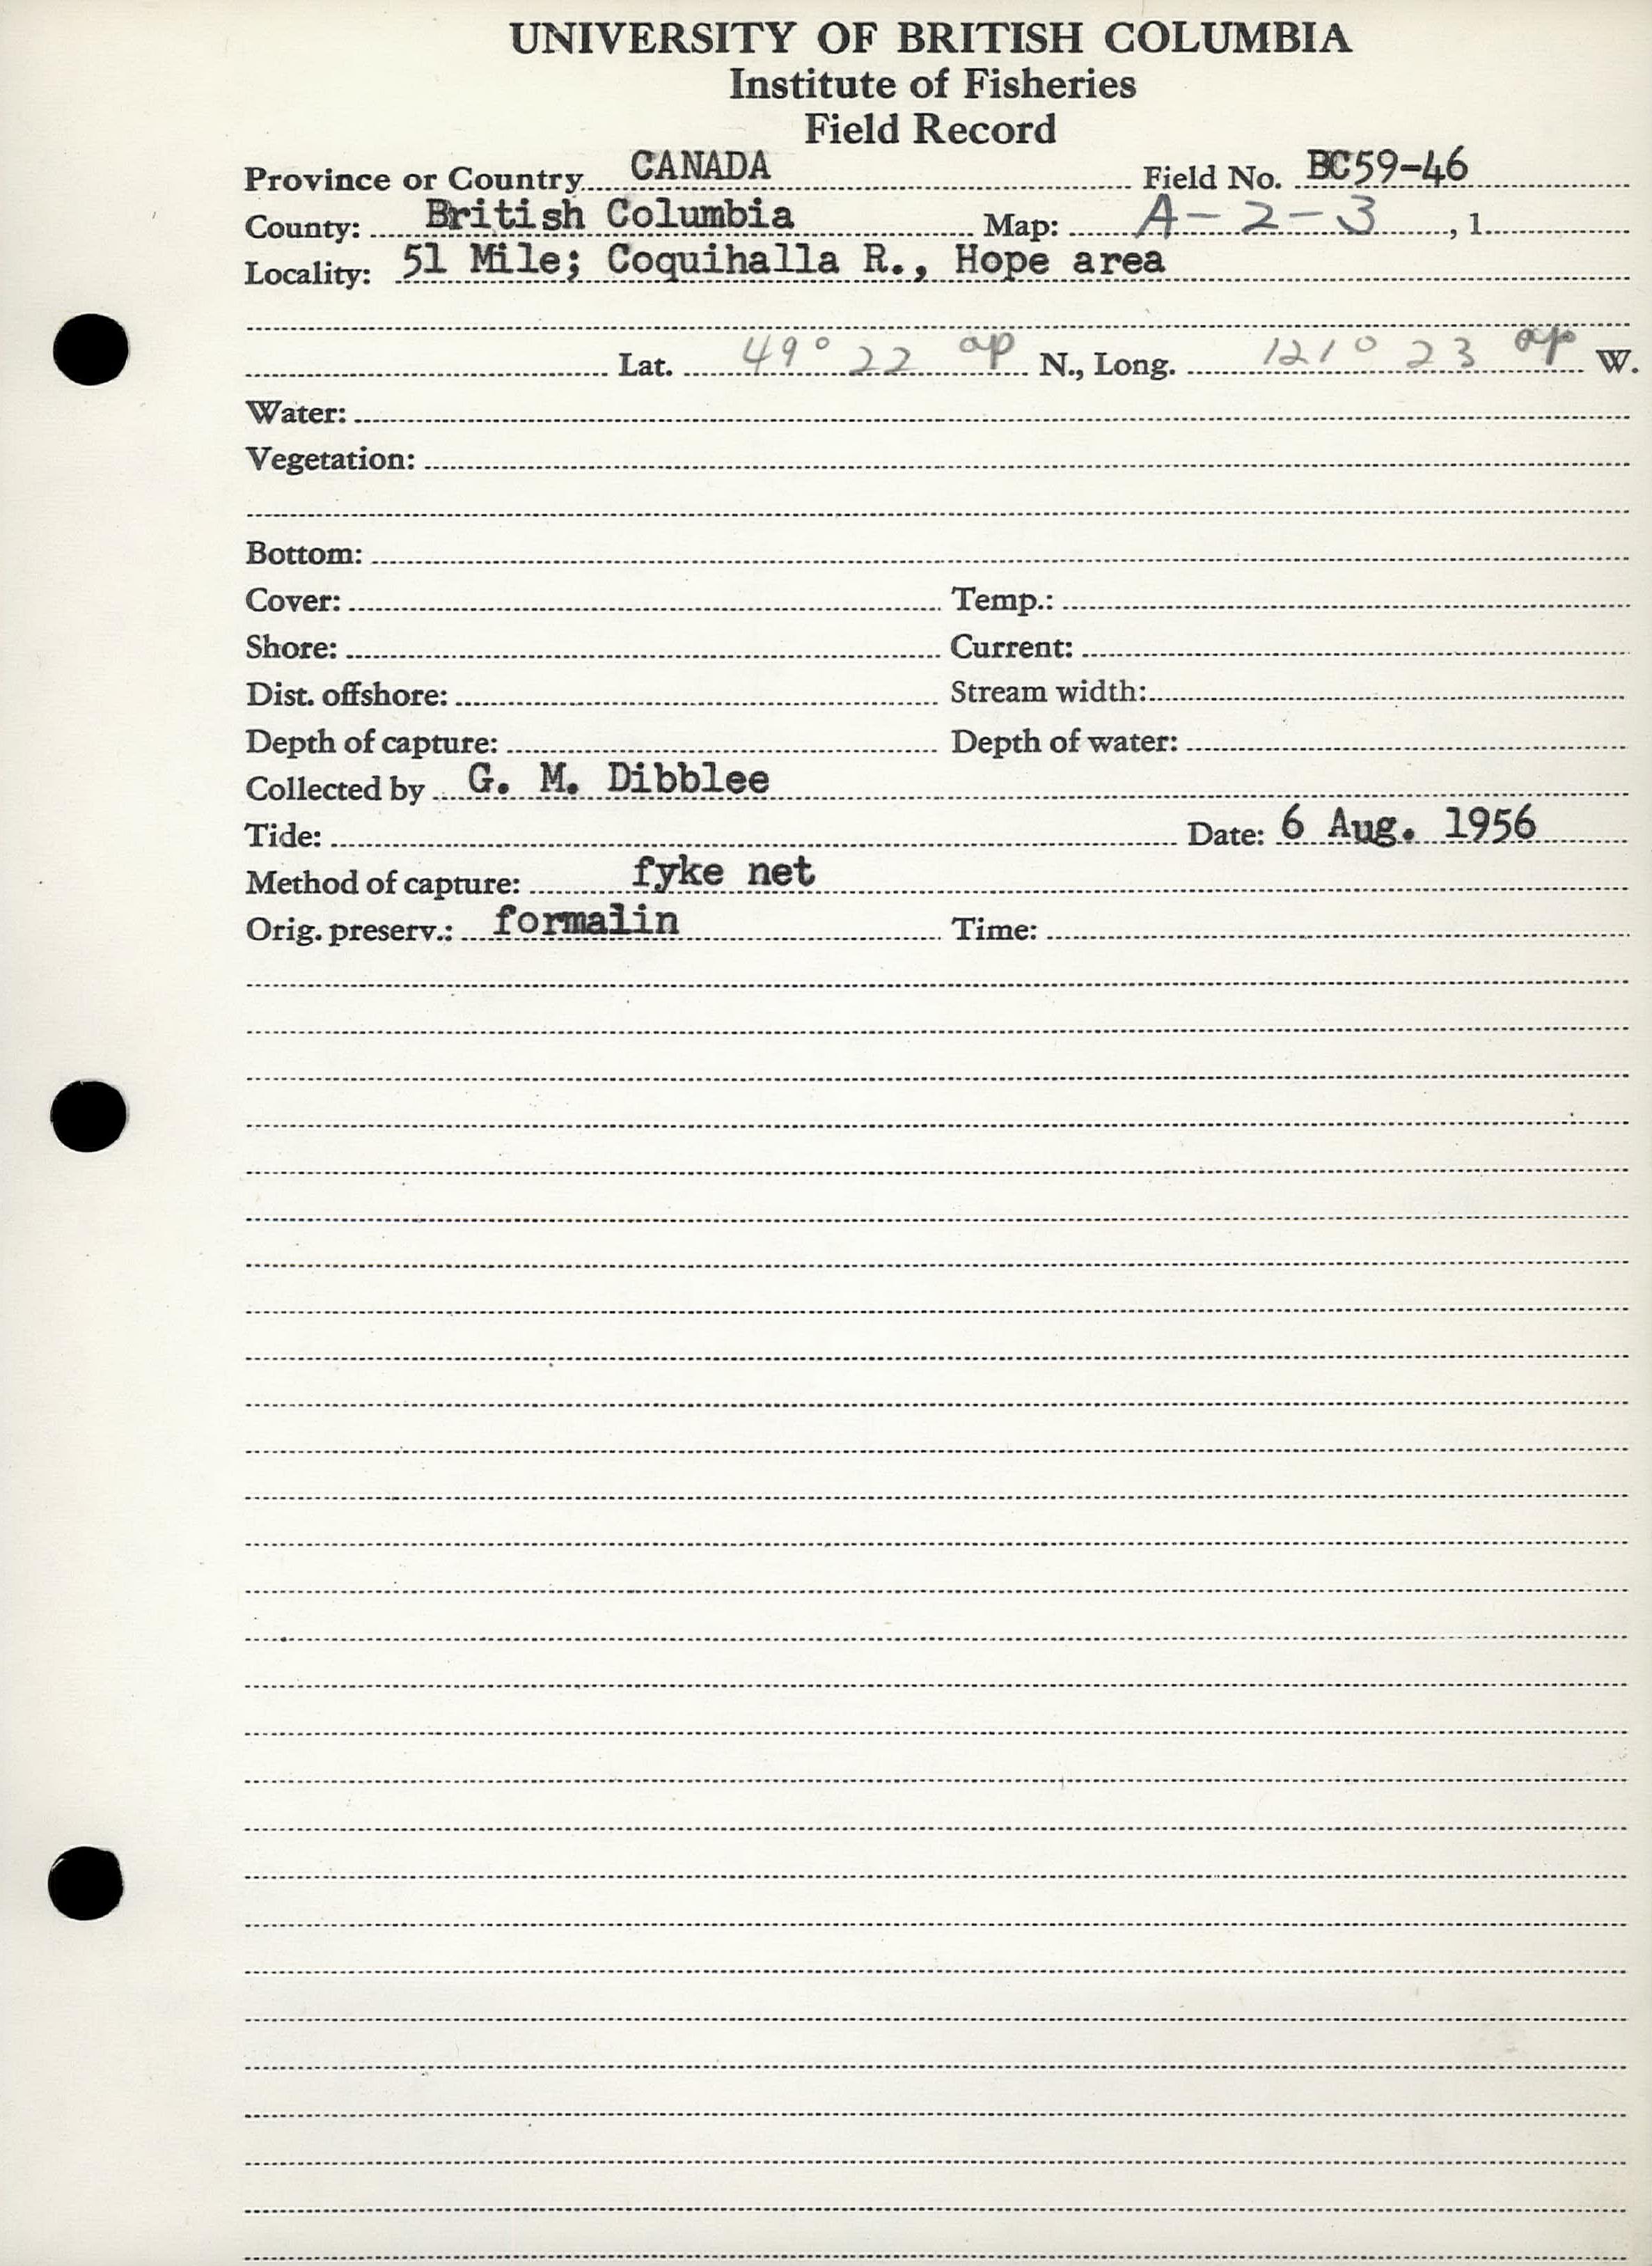 UNIVERSITY OF BRITISH COLUMBIA
Institute of Fisheries
Field Record
Province or Country CANADA Field No. BC59-46
County: British Columbia Map: A-2-3, 1.
Locality: 51 Mile; Coquihalla R., Hope area
Lat. 49° 22 ap N., Long. 121° 23 ap W.
Water:
Vegetation:
Bottom:
Cover: Temp.:
Shore: Current:
Dist. offshore: Stream width:
Depth of capture: Depth of water:
Collected by G. M. Dibblee
Tide: Date: 6 Aug. 1956
Method of capture: fyke net
Orig. preserv.: formalin Time: